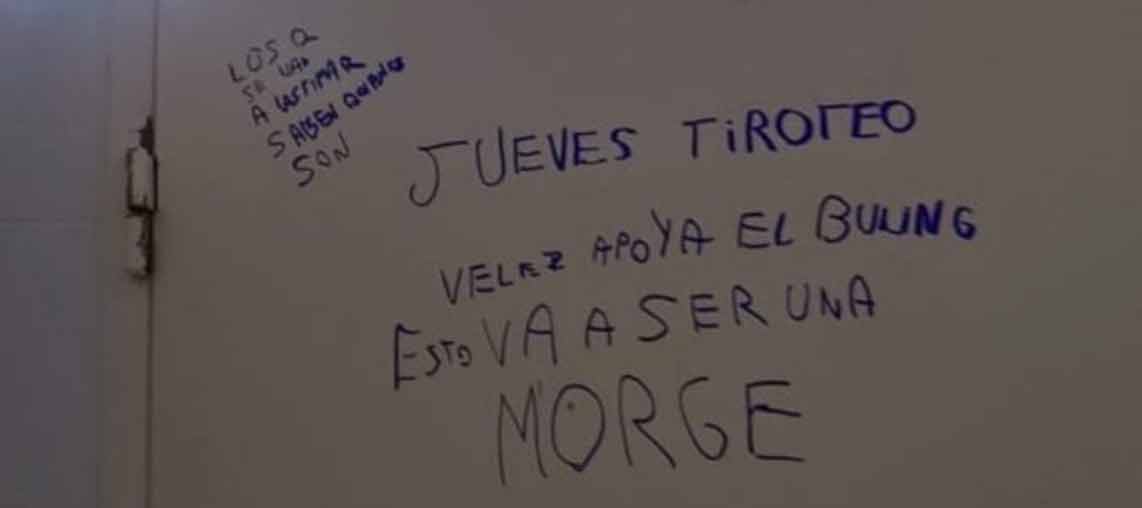 LOS Q
SE VAN
A LASTIMAR
SABEN QUIENES
SON
JUEVES TiROTEO
VELEZ APOYA EL BULING
ESTO VA A SER UNA
MORGE